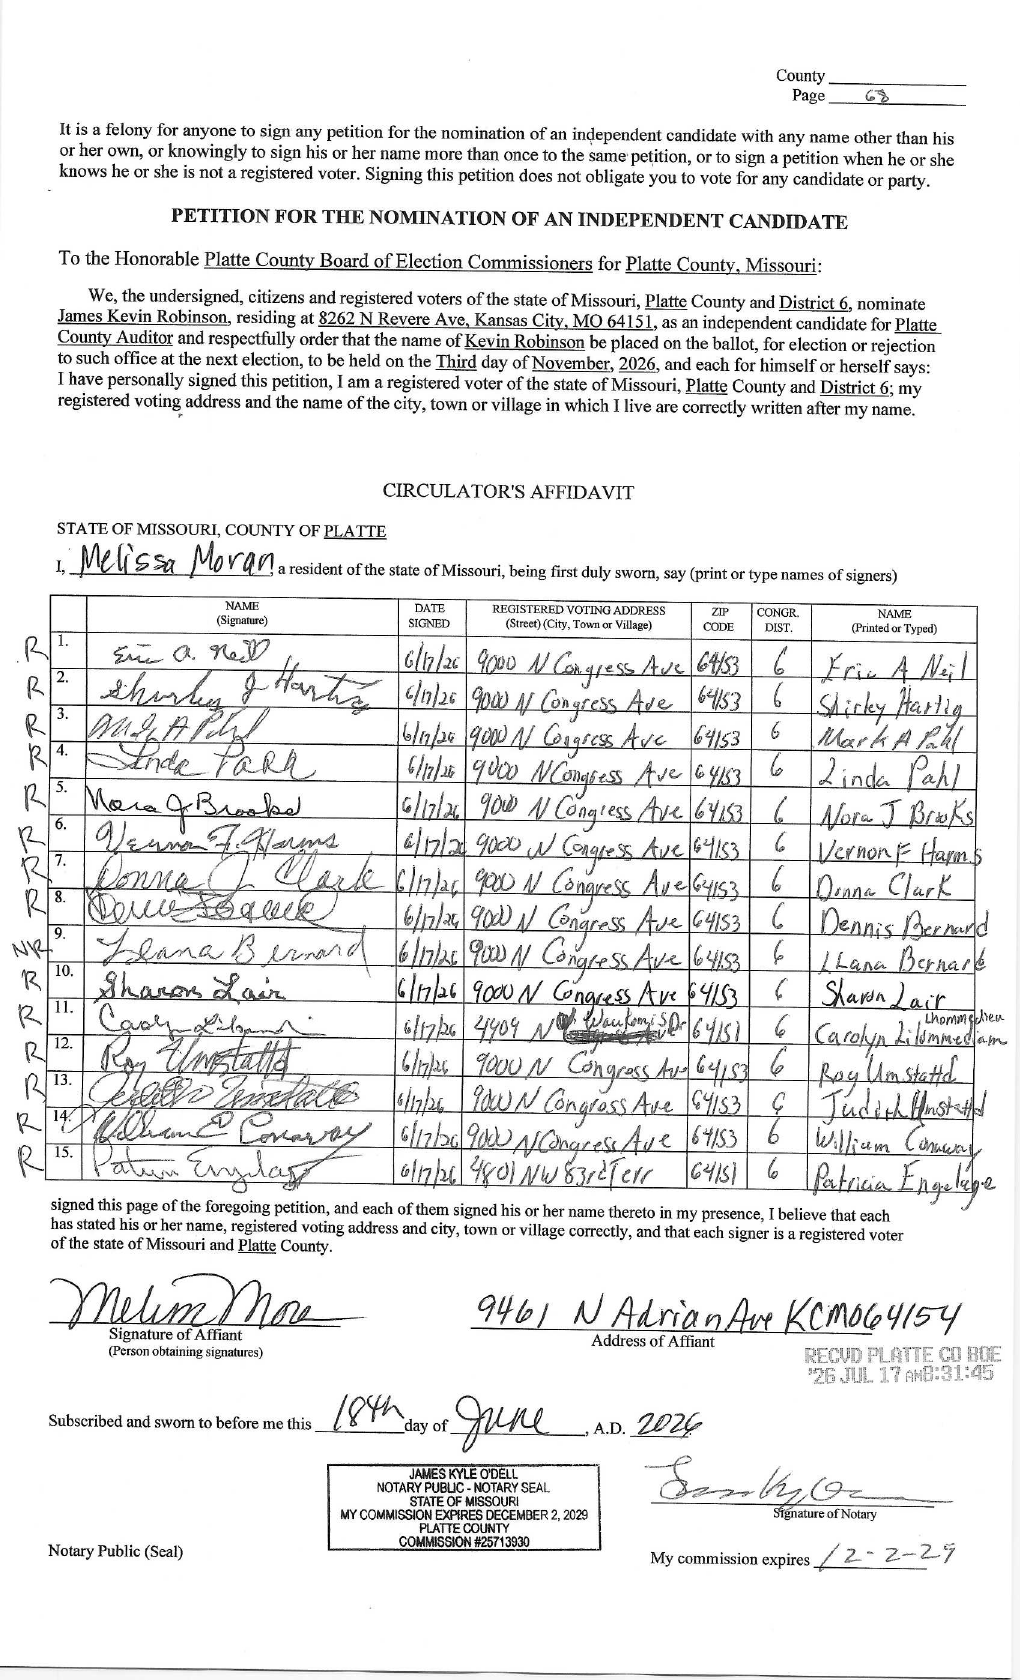 County
Page 68
It is a felony for anyone to sign any petition for the nomination of an independent candidate with any name other than his
or her own, or knowingly to sign his or her name more than once to the same petition, or to sign a petition when he or she
knows he or she is not a registered voter. Signing this petition does not obligate you to vote for any candidate or party.
PETITION FOR THE NOMINATION OF AN INDEPENDENT CANDIDATE
To the Honorable Platte County Board of Election Commissioners for Platte County, Missouri:
We, the undersigned, citizens and registered voters of the state of Missouri, Platte County and District 6, nominate
James Kevin Robinson, residing at 8262 N Revere Ave, Kansas City, MO 64151, as an independent candidate for Platte
County Auditor and respectfully order that the name of Kevin Robinson be placed on the ballot, for election or rejection
to such office at the next election, to be held on the Third day of November, 2026, and each for himself or herself says:
I have personally signed this petition, I am a registered voter of the state of Missouri, Platte County and District 6; my
registered voting address and the name of the city, town or village in which I live are correctly written after my name.
CIRCULATOR'S AFFIDAVIT
STATE OF MISSOURI, COUNTY OF PLATTE
I, Melissa Moran, a resident of the state of Missouri, being first duly sworn, say (print or type names of signers)
NAME (Signature) DATE SIGNED REGISTERED VOTING ADDRESS (Street) (City, Town or Village) ZIP CODE CONGR. DIST. NAME (Printed or Typed)
R 1. Eric A. Neil 6/17/26 9000 N Congress Ave 64153 6 Eric A Neil
R 2. Shirley J Hartig 6/17/26 9000 N Congress Ave 64153 6 Shirley Hartig
R 3. Mark A Pahl 6/17/26 9000 N Congress Ave 64153 6 Mark A Pahl
R 4. Linda Pahl 6/17/26 9000 N Congress Ave 64153 6 Linda Pahl
R 5. Nora J Brooks 6/17/26 9000 N Congress Ave 64153 6 Nora J Brooks
R 6. Vernon F. Harms 6/17/26 9000 N Congress Ave 64153 6 Vernon F Harms
R 7. Donna J. Clark 6/17/26 9000 N Congress Ave 64153 6 Donna Clark
R 8. 6/17/26 9000 N Congress Ave 64153 6 Dennis Bernard
NR 9. Ilana Bernard 6/17/26 9000 N Congress Ave 64153 6 Ilana Bernard
R 10. Sharon Lair 6/17/26 9000 N Congress Ave 64153 6 Sharon Lair
R 11. 6/17/26 4909 N Waukomis Dr 64151 6 Carolyn
R 12. Roy Umstattd 6/17/26 9000 N Congress Ave 64153 6 Roy Umstattd
R 13. 6/17/26 9000 N Congress Ave 64153 6 Judith Umstattd
R 14. William E Conaway 6/17/26 9000 N Congress Ave 64153 6 William Conaway
R 15. 6/17/26 4801 NW 83rd Terr 64151 6 Patricia Engelage
signed this page of the foregoing petition, and each of them signed his or her name thereto in my presence, I believe that each
has stated his or her name, registered voting address and city, town or village correctly, and that each signer is a registered voter
of the state of Missouri and Platte County.
9461 N Adrian Ave KCMO 64154
Signature of Affiant
(Person obtaining signatures)
Address of Affiant
RECVD PLATTE CO BOE
'26 JUL 17 AM8:31:45
Subscribed and sworn to before me this 18th day of June, A.D. 2026
JAMES KYLE O'DELL
NOTARY PUBLIC - NOTARY SEAL
STATE OF MISSOURI
MY COMMISSION EXPIRES DECEMBER 2, 2029
PLATTE COUNTY
COMMISSION #25713930
Signature of Notary
Notary Public (Seal)
My commission expires 12-2-29